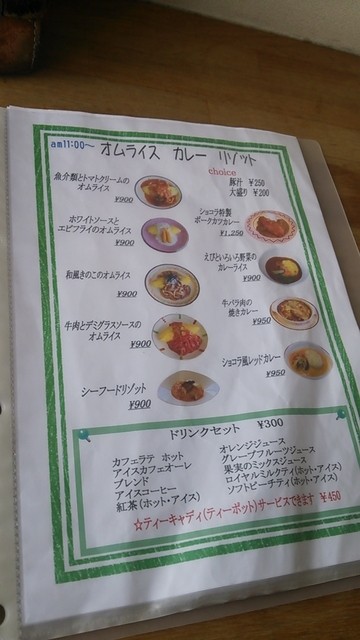 am11:00~ オムライス カレー リゾット
choice
豚汁 ¥250
大盛り ¥200
魚介類とトマトクリームの
オムライス
¥900
ホワイトソースと
エビフライのオムライス
¥900
和風きのこのオムライス
¥900
牛肉とデミグラスソースの
オムライス
¥900
シーフードリゾット
¥900
ショコラ特製
ポークカツカレー
¥1,250
えびといろいろ野菜の
カレーライス
¥900
牛バラ肉の
焼きカレー
¥950
ショコラ風レッドカレー
¥950
ドリンクセット ¥300
カフェラテ ホット
アイスカフェオーレ
ブレンド
アイスコーヒー
紅茶(ホット・アイス)
オレンジジュース
グレープフルーツジュース
果実のミックスジュース
ロイヤルミルクティ(ホット・アイス)
ソフトピーチティ(ホット・アイス)
☆ティーキャディ(ティーポット)サービスできます ¥450